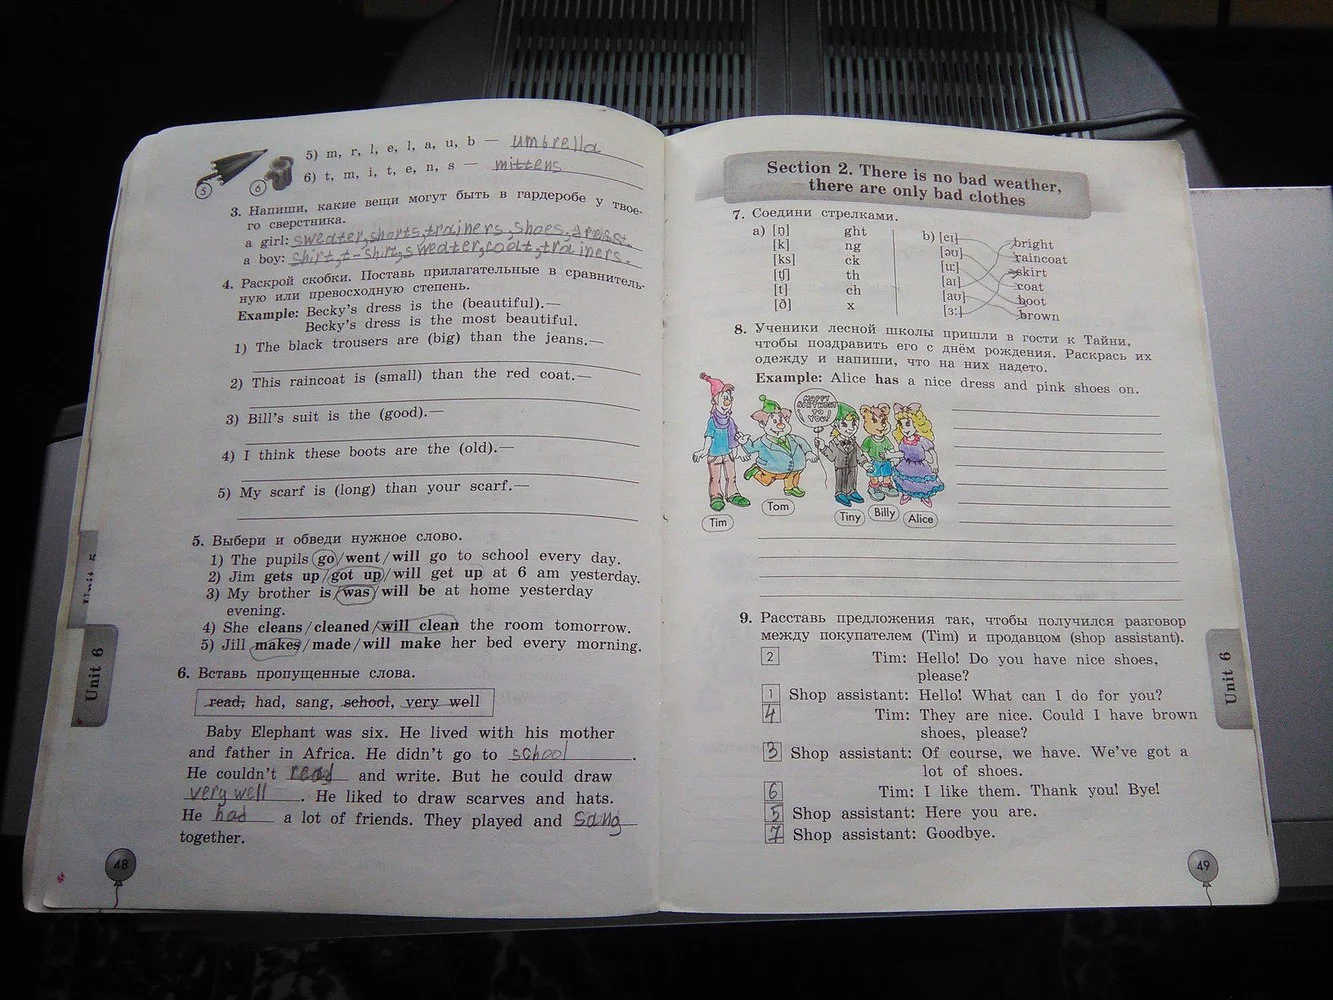 5) m, r, l, e, l, a, u, b — umbrella
6) t, m, i, t, e, n, s — mittens
5
6
3. Напиши, какие вещи могут быть в гардеробе у твое-
го сверстника.
a girl: sweater, shorts, trainers, shoes,
a boy: shirt, t-shirt, sweater, coat, trainers.
4. Раскрой скобки. Поставь прилагательные в сравнитель-
ную или превосходную степень.
Example: Becky's dress is the (beautiful).—
Becky's dress is the most beautiful.
1) The black trousers are (big) than the jeans.—
2) This raincoat is (small) than the red coat.—
3) Bill's suit is the (good).—
4) I think these boots are the (old).—
5) My scarf is (long) than your scarf.—
5. Выбери и обведи нужное слово.
1) The pupils go/went/will go to school every day.
2) Jim gets up/got up/will get up at 6 am yesterday.
3) My brother is/was/will be at home yesterday
evening.
4) She cleans/cleaned/will clean the room tomorrow.
5) Jill makes/made/will make her bed every morning.
6. Вставь пропущенные слова.
read, had, sang, school, very well
Baby Elephant was six. He lived with his mother
and father in Africa. He didn't go to school.
He couldn't read and write. But he could draw
very well. He liked to draw scarves and hats.
He had a lot of friends. They played and sang
together.
Unit 6
48
Section 2. There is no bad weather,
there are only bad clothes
7. Соедини стрелками.
a) [ɒ] ght
[k] ng
[ks] ck
[tʃ] th
[t] ch
[ð] x
b) [eɪ] bright
[əʊ] raincoat
[u:] skirt
[aɪ] coat
[aʊ] boot
[ɜ:] brown
8. Ученики лесной школы пришли в гости к Тайни,
чтобы поздравить его с днём рождения. Раскрась их
одежду и напиши, что на них надето.
Example: Alice has a nice dress and pink shoes on.
HAPPY
BIRTHDAY
TO
YOU!
Tim
Tom
Tiny
Billy
Alice
9. Расставь предложения так, чтобы получился разговор
между покупателем (Tim) и продавцом (shop assistant).
2 Tim: Hello! Do you have nice shoes,
please?
1 Shop assistant: Hello! What can I do for you?
4 Tim: They are nice. Could I have brown
shoes, please?
3 Shop assistant: Of course, we have. We've got a
lot of shoes.
6 Tim: I like them. Thank you! Bye!
5 Shop assistant: Here you are.
7 Shop assistant: Goodbye.
Unit 6
49